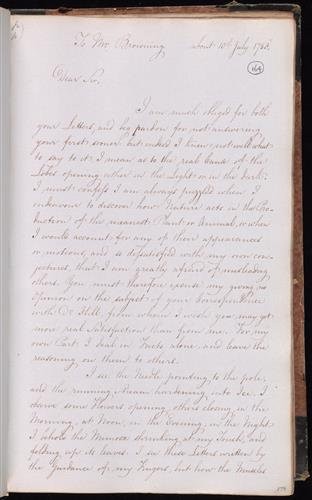 To Mr. Browning about 10th July 1758.
164
Dear Sir,
I am much obliged for both
your Letters, and beg pardon for not answering
your first sooner but indeed I knew not well what
to say to it; I mean as to the real cause of the
Lobes opening either in the Light or in the dark:
I must confess I am always puzzled when I
endeavour to discover how Nature acts in the Pro-
duction of the meanest Plant or Animal, or when
I would account for any of their appearances
or motions, and so dissatisfied with my own con-
jectures, that I am greatly afraid of misleading
others. You must therefore excuse my giving no
Opinion on the subject of your Correspondence
with Dr. Hill, from whom I wish you may get
more real Satisfaction than from me. For my
own Part, I deal in Facts alone, and leave the
reasoning on them to others.
I see the Needle pointing to the pole,
and the running Stream hardening into Ice; I
observe some Flowers opening, others closing in the
Morning, at Noon, in the Evening, in the Night.
I behold the Mimosa shrinking at my Touch, and
folding up its leaves. I see these Letters written by
the Guidance of my Fingers, but how the Muscles